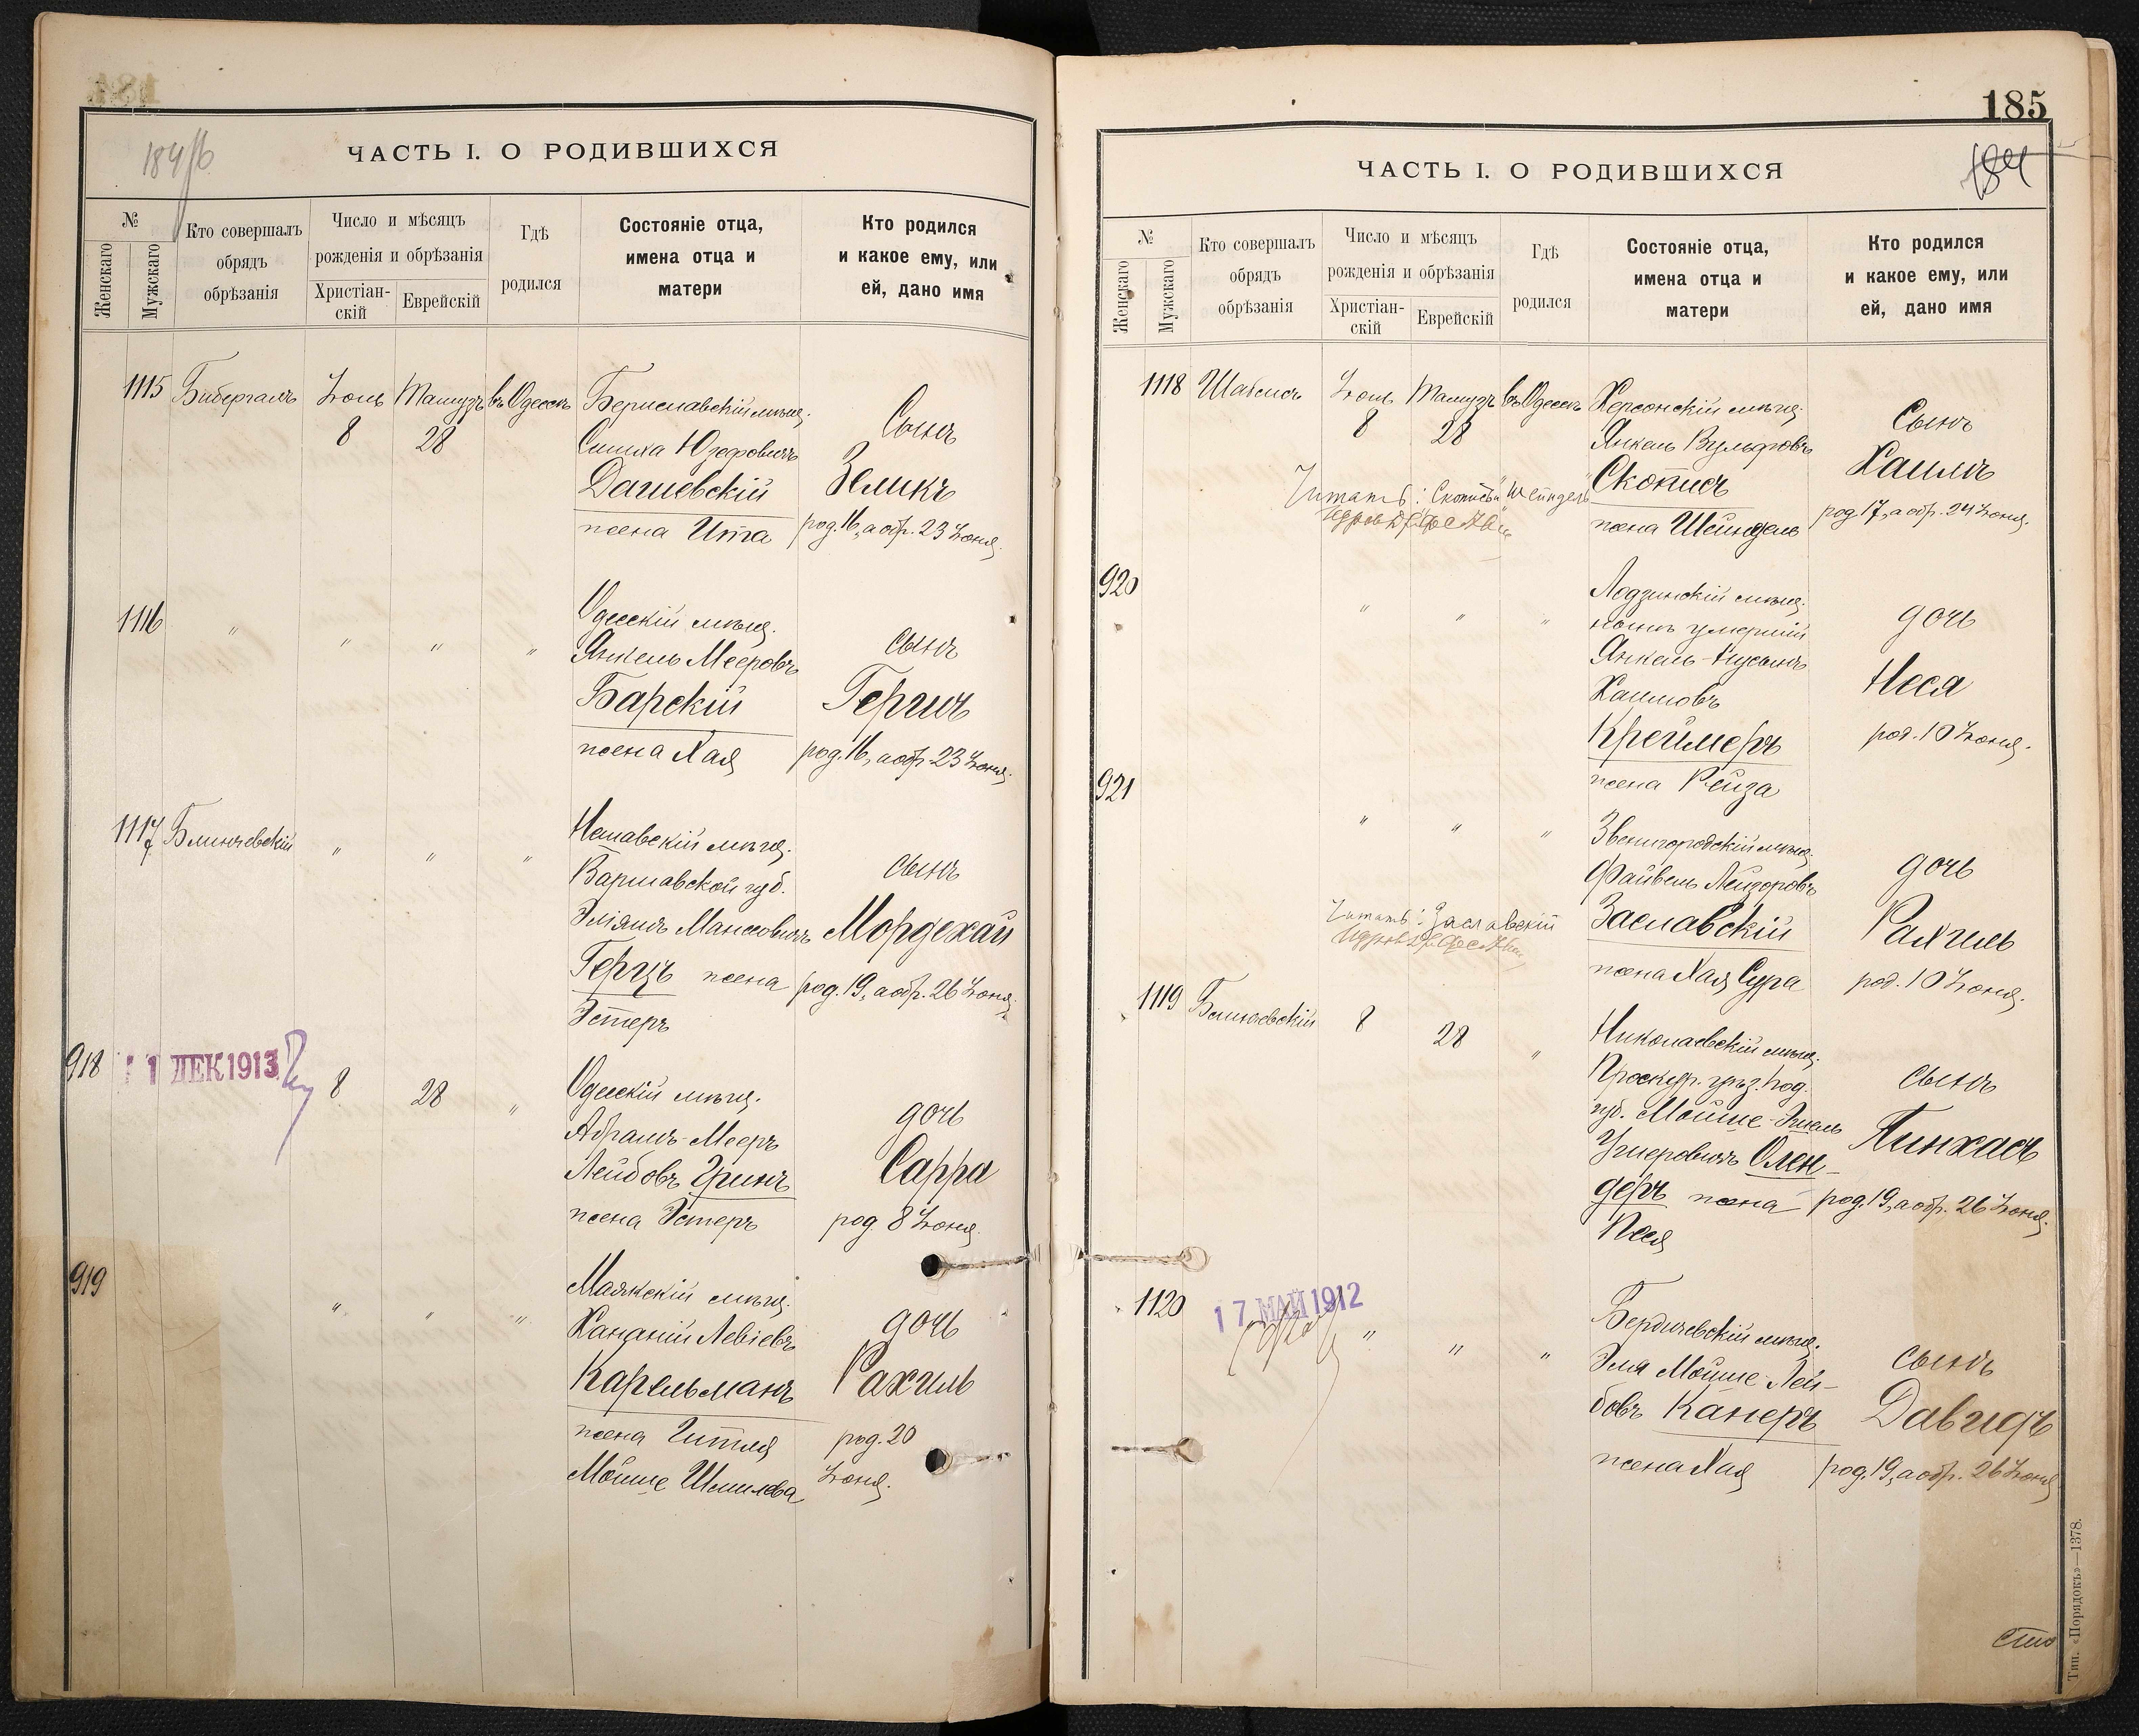 184/б
ЧАСТЬ I. О РОДИВШИХСЯ
№
Женскаго
Мужскаго
Кто совершалъ
обрядъ
обрѣзанія
Число и мѣсяцъ
рожденія и обрѣзанія
Христіан-
скій
Еврейскій
Гдѣ
родился
Состояніе отца,
имена отца и
матери
Кто родился
и какое ему, или
ей, дано имя
1115 Бибергалъ Іюль Тамузъ въ Одессѣ Бериславскій мѣщ.
8 28
Симха Юзефовичъ
Дашевскій
жена Ита
Сынъ
Зеликъ
род. 16, а обр. 23 Іюня.
1116 " " " "
Одесскій мѣщ.
Янкель Мееровъ
Барскій
жена Хая
сынъ
Гершъ
род. 16, а обр. 23 Іюня.
1117 Блинчевскій " " "
мѣщ.
Варшавской губ.
Эліяшъ
Герцъ жена
Эстеръ
сынъ
Мордехай
род. 19, а обр. 26 Іюня.
918 11 ДЕК 1913 8 28 "
Одесскій мѣщ.
Абрамъ-Мееръ
Лейбовъ Гринъ
жена Эстеръ
дочь
Сарра
род. 8 Іюня.
919 " " "
Маякскій мѣщ.
Хананій Левіевъ
Карельманъ
жена Гитля
Мойше Шмилева
дочь
Рахиль
род. 20
Іюня.
185
184
ЧАСТЬ I. О РОДИВШИХСЯ
№
Женскаго
Мужскаго
Кто совершалъ
обрядъ
обрѣзанія
Число и мѣсяцъ
рожденія и обрѣзанія
Христіан-
скій
Еврейскій
Гдѣ
родился
Состояніе отца,
имена отца и
матери
Кто родился
и какое ему, или
ей, дано имя
1118 Іюль Тамузъ въ Одессѣ Херсонскій мѣщ.
8 28
Янкель Вульфовъ
Скописъ
жена Шейндель
Читать: "Скописъ" и "Шейндель"
Сынъ
Хаимъ
род. 17, а обр. 24 Іюня.
920 " " "
Лодзинскій мѣщ.
нынѣ умершій
Янкель-Нусынъ
Хаимовъ
Креймеръ
жена Рейза
дочь
Неся
род. 10 Іюня.
921 " " "
Звенигородскій мѣщ.
Файвель Лейзоровъ
Заславскій
жена Хая Сура
Читать: Заславскій
дочь
Рахиль
род. 10 Іюня.
1119 Блинчевскій 8 28 "
Николаевскій мѣщ.
Проскур. уѣз. Под.
губ. Мойше-
Ушеровичъ Олен-
деръ жена
Песя
сынъ
Пинхасъ
род. 19, а обр. 26 Іюня.
1120 17 МАЙ 1912 " " "
Бердичевскій мѣщ.
Эля Мойше Лей-
бовъ Канеръ
жена Хая
сынъ
Давидъ
род. 19, а обр. 26 Іюня
Тип. «Порядокъ»—1378.